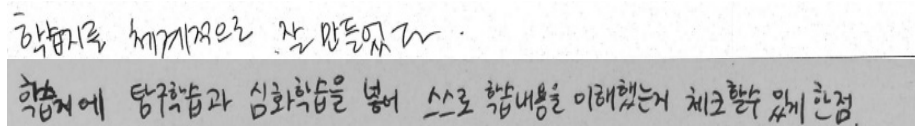 학습지를 체계적으로 잘 만들었다.
학습지에 탐구학습과 심화학습을 넣어 스스로 학습내용을 이해했는지 체크할수 있게 한점.